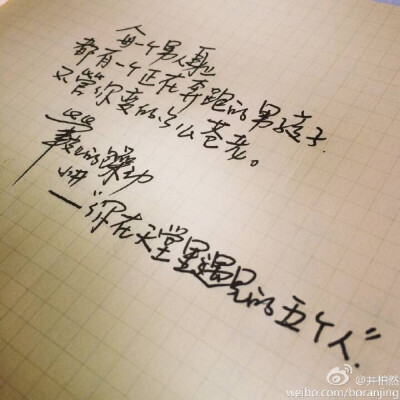 每一个男人身
都有一个正在奔跑的男孩子
不管你变的多么苍老。
的躁动
——“你在天堂里遇见的五个人”
@井柏然
weibo.com/boranjing